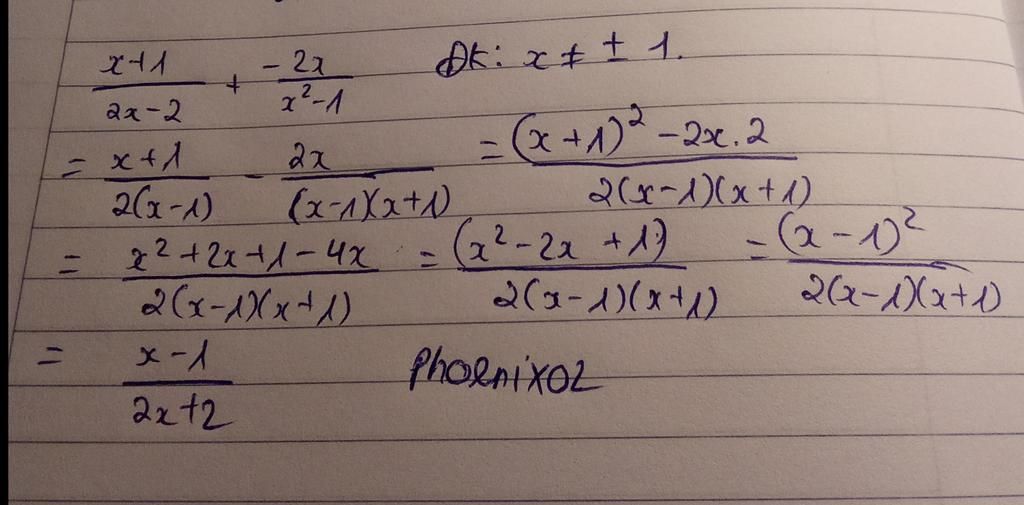 (x+1)/(2x-2) + (-2x)/(x²-1) ĐK: x ≠ ± 1.
= (x+1)/(2(x-1)) - 2x/((x-1)(x+1)) = ((x+1)² - 2x.2)/(2(x-1)(x+1))
= (x²+2x+1-4x)/(2(x-1)(x+1)) = (x²-2x+1)/(2(x-1)(x+1)) = (x-1)²/(2(x-1)(x+1))
= (x-1)/(2x+2) Phoenix02